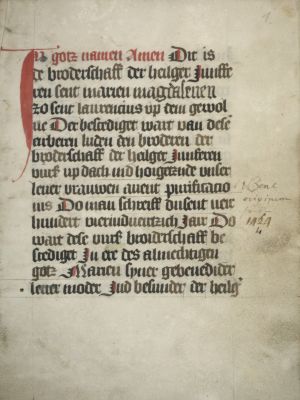 1.
In gotz namen Amen Dit is
de broderschaff der heilger Junffe
ren sent marien magdalenen
zo sent laurencius vp dem
ue Der bestediger wart van dese
erberen luden den broderen der
broderschaff der heilger Junferen
vurß vp dach und hoigetzijde vnser
leuer vrauwen auent purificatio
nis Do man schreiff dusent veir
hundert vierinduentzich Jair Do
wart dese vurß broiderschaff be
stediget In ere des almechtigen
gotz Marien syner gebenedider
leuer moder Ind besunder der heilg
origin
1424